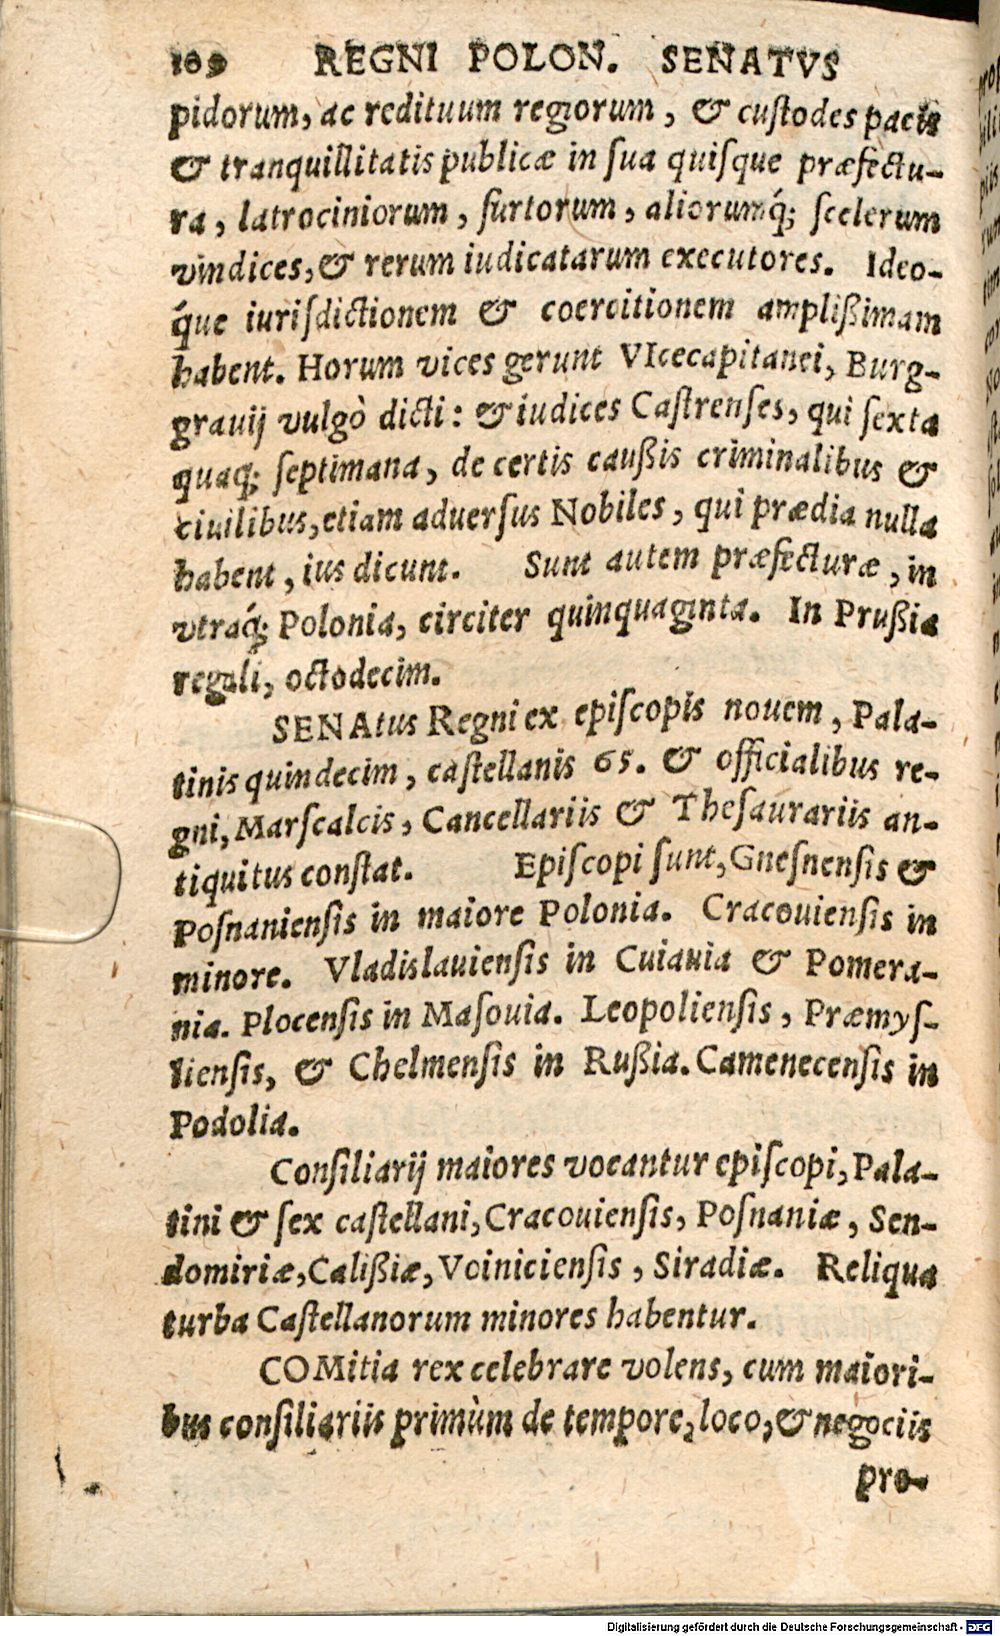 189 REGNI POLON. SENATVS
pidorum, ac redituum regiorum, & cuſtodes pacis
& tranquillitatis publicæ in ſua quiſque præfectu-
ra, latrociniorum, furtorum, aliorumq́; ſcelerum
vindices, & rerum iudicatarum executores. Ideo-
q́ue iuriſdictionem & coercitionem ampliſſimam
habent. Horum vices gerunt VIcecapitanei, Burg-
grauij vulgò dicti: & iudices Caſtrenſes, qui ſexta
quaq; ſeptimana, de certis cauſſis criminalibus &
ciuilibus, etiam aduerſus Nobiles, qui prædia nulla
habent, ius dicunt. Sunt autem præfecturæ, in
vtraq́; Polonia, circiter quinquaginta. In Pruſſia
regali, octodecim.
SENAtus Regni ex epiſcopis nouem, Pala-
tinis quindecim, caſtellanis 65. & officialibus re-
gni, Marſcalcis, Cancellariis & Theſaurariis an-
tiquitus conſtat. Epiſcopi ſunt, Gneſnenſis &
Poſnanienſis in maiore Polonia. Cracouienſis in
minore. Vladislauienſis in Cuiauia & Pomera-
nia. Plocenſis in Maſouia. Leopolienſis, Præmyſ-
lienſis, & Chelmenſis in Ruſſia. Camenecenſis in
Podolia.
Conſiliarij maiores vocantur epiſcopi, Pala-
tini & ſex caſtellani, Cracouienſis, Poſnaniæ, Sen-
domiriæ, Caliſſiæ, Voinicienſis, Siradiæ. Reliqua
turba Caſtellanorum minores habentur.
COMitia rex celebrare volens, cum maiori-
bus conſiliariis primùm de tempore, loco, & negociis
pro-
Digitalisierung gefördert durch die Deutsche Forschungsgemeinschaft - DFG